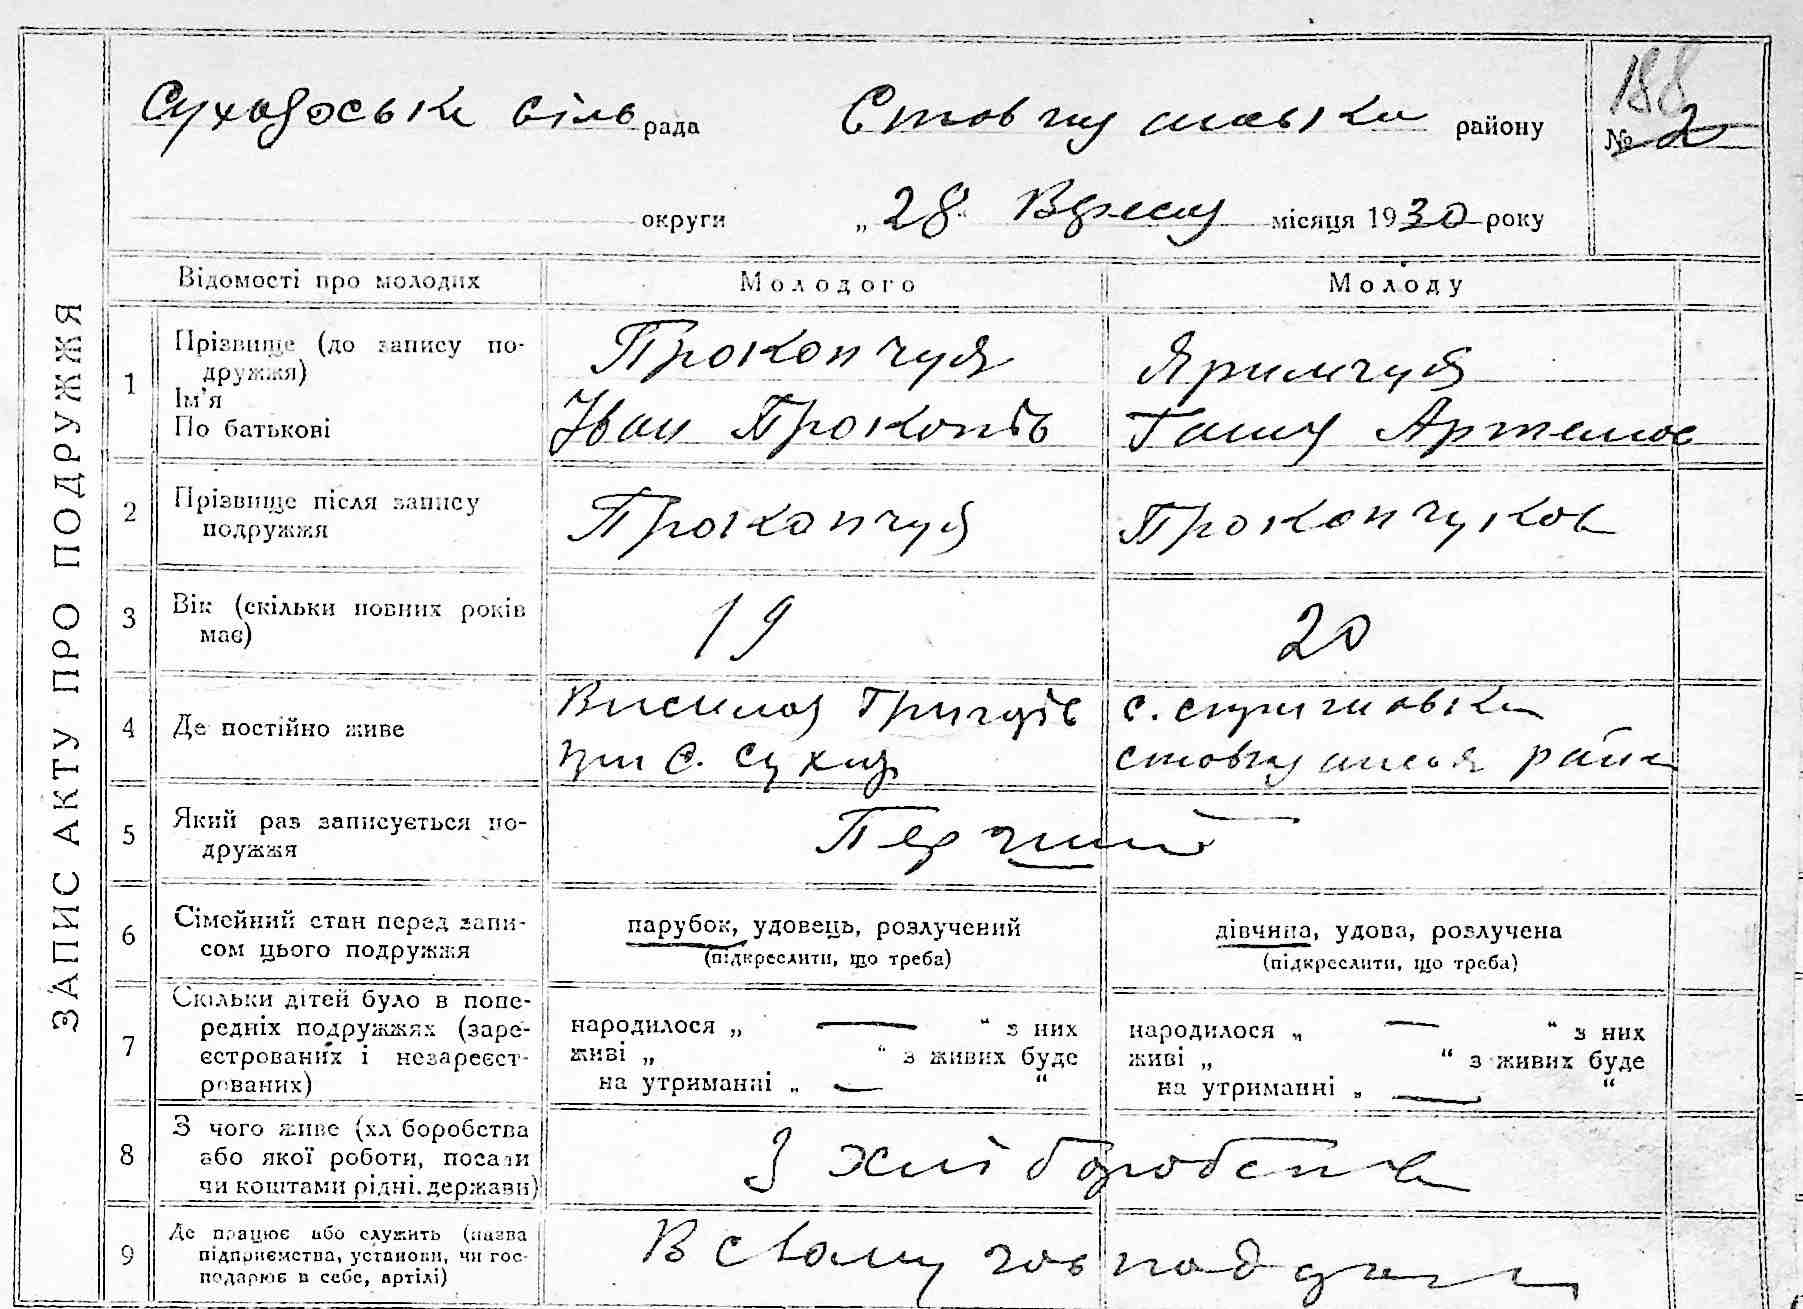 ЗАПИС АКТУ ПРО ПОДРУЖЖЯ
188
сіль рада района району № 2
округи „28“ Вресня місяця 1930 року
Відомості про молодих Молодого Молоду
1 Прізвище (до запису по-
дружжя) Прокопчук Яримчук
Ім'я
По батькові Іван Прокопів Ганна Артемов
2 Прізвище після запису
подружжя Прокопчук Прокопчуков
3 Вік (скільки повних років
має) 19 20
4 Де постійно живе
при с. с.
5 Який раз записується по-
дружжя Перший
6 Сімейний стан перед запи-
сом цього подружжя парубок, удовець, розлучений дівчина, удова, розлучена
(підкреслити, що треба) (підкреслити, що треба)
7 Скільки дітей було в попе-
редніх подружжях (заре-
єстрованих і незареєст-
рованих)
народилося „ — “ з них народилося „ — “ з них
живі „ “ з живих буде живі „ “ з живих буде
на утриманні „ — “ на утриманні „ — “
8 З чого живе (хліборобства
або якої роботи, посади
чи коштами рідні, держави) З хліборобства
9 Де працює або служить (назва
підприємства, установи, чи гос-
подарює в себе, артілі) В свому